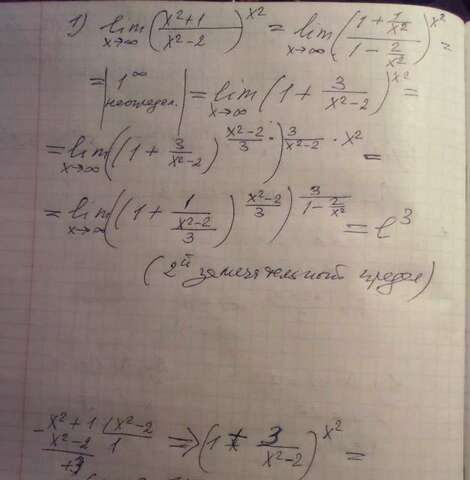 1) lim x→∞ ((x²+1)/(x²-2))^(x²) = lim x→∞ ((1+1/x²)/(1-2/x²))^(x²) =
= |1^∞ неопредел.| = lim x→∞ (1 + 3/(x²-2))^(x²) =
= lim x→∞ ((1 + 3/(x²-2))^((x²-2)/3))^(3/(x²-2) · x²) =
= lim x→∞ ((1 + 1/((x²-2)/3))^((x²-2)/3))^(3/(1-2/x²)) = e³
(2й замечательный предел)
- x²+1 | x²-2
x²-2 | 1
+3
=> (1 + 3/(x²-2))^(x²) =